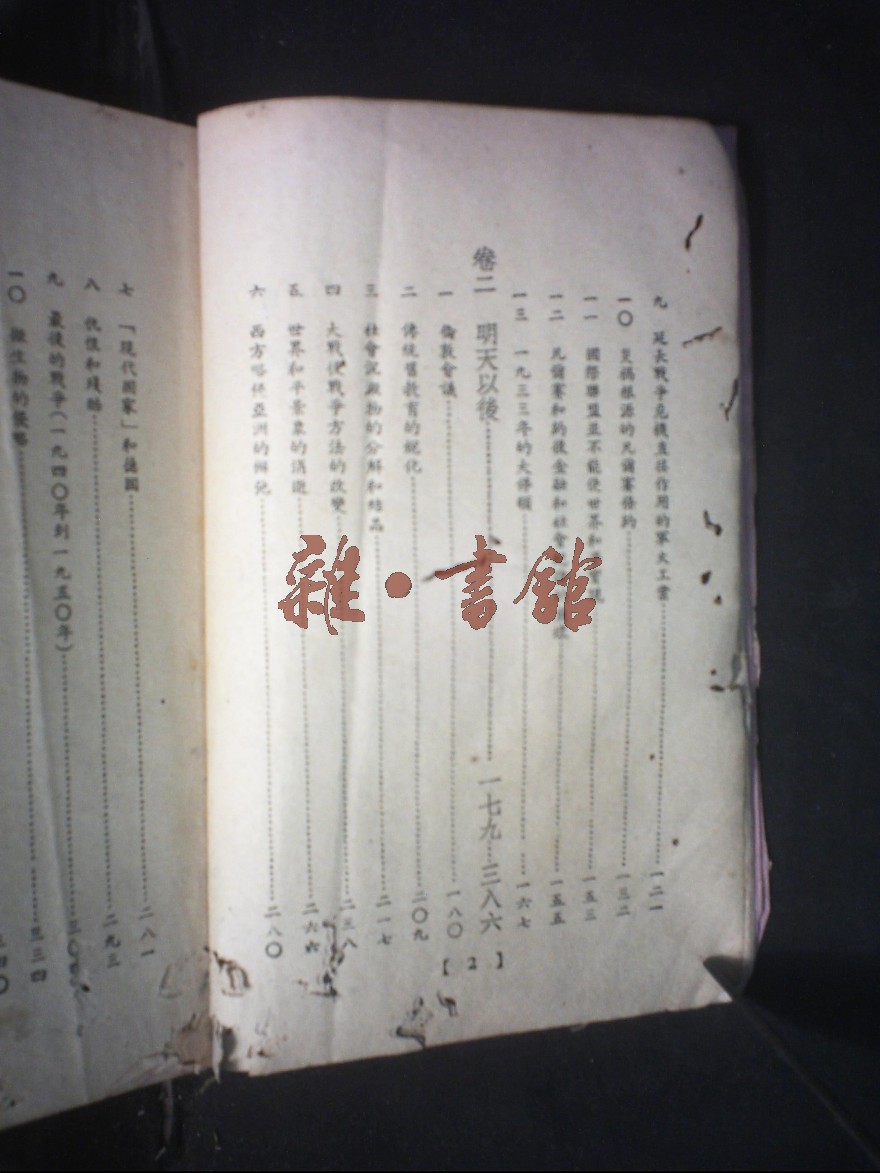 九 延長戰爭危機直接作用的軍火工業……一二一
一〇 災禍根源的凡爾賽條約……一三二
一一 國際聯盟並不能使世界和……一五三
一二 凡爾賽和約後金融和社會……一五五
一三 一九三三年的大停頓……一六七
卷二 明天以後……一七九—三八六
一 倫敦會議……一八〇
二 傳統舊教育的蛻化……二〇九
三 社會沉澱物的分解和結晶……二一七
四 大戰後戰爭方法的改變……二三八
五 世界和平景象的消逝……二六六
六 西方略使亞洲的……二八〇
【2】
七 「現代國家」和德國……二八一
八 仇恨和殘酷……二九三
九 最後的戰爭(一九四〇年到一九五〇年)……三〇
一〇 微生物的侵略……三三四
三四〇
雜·書館